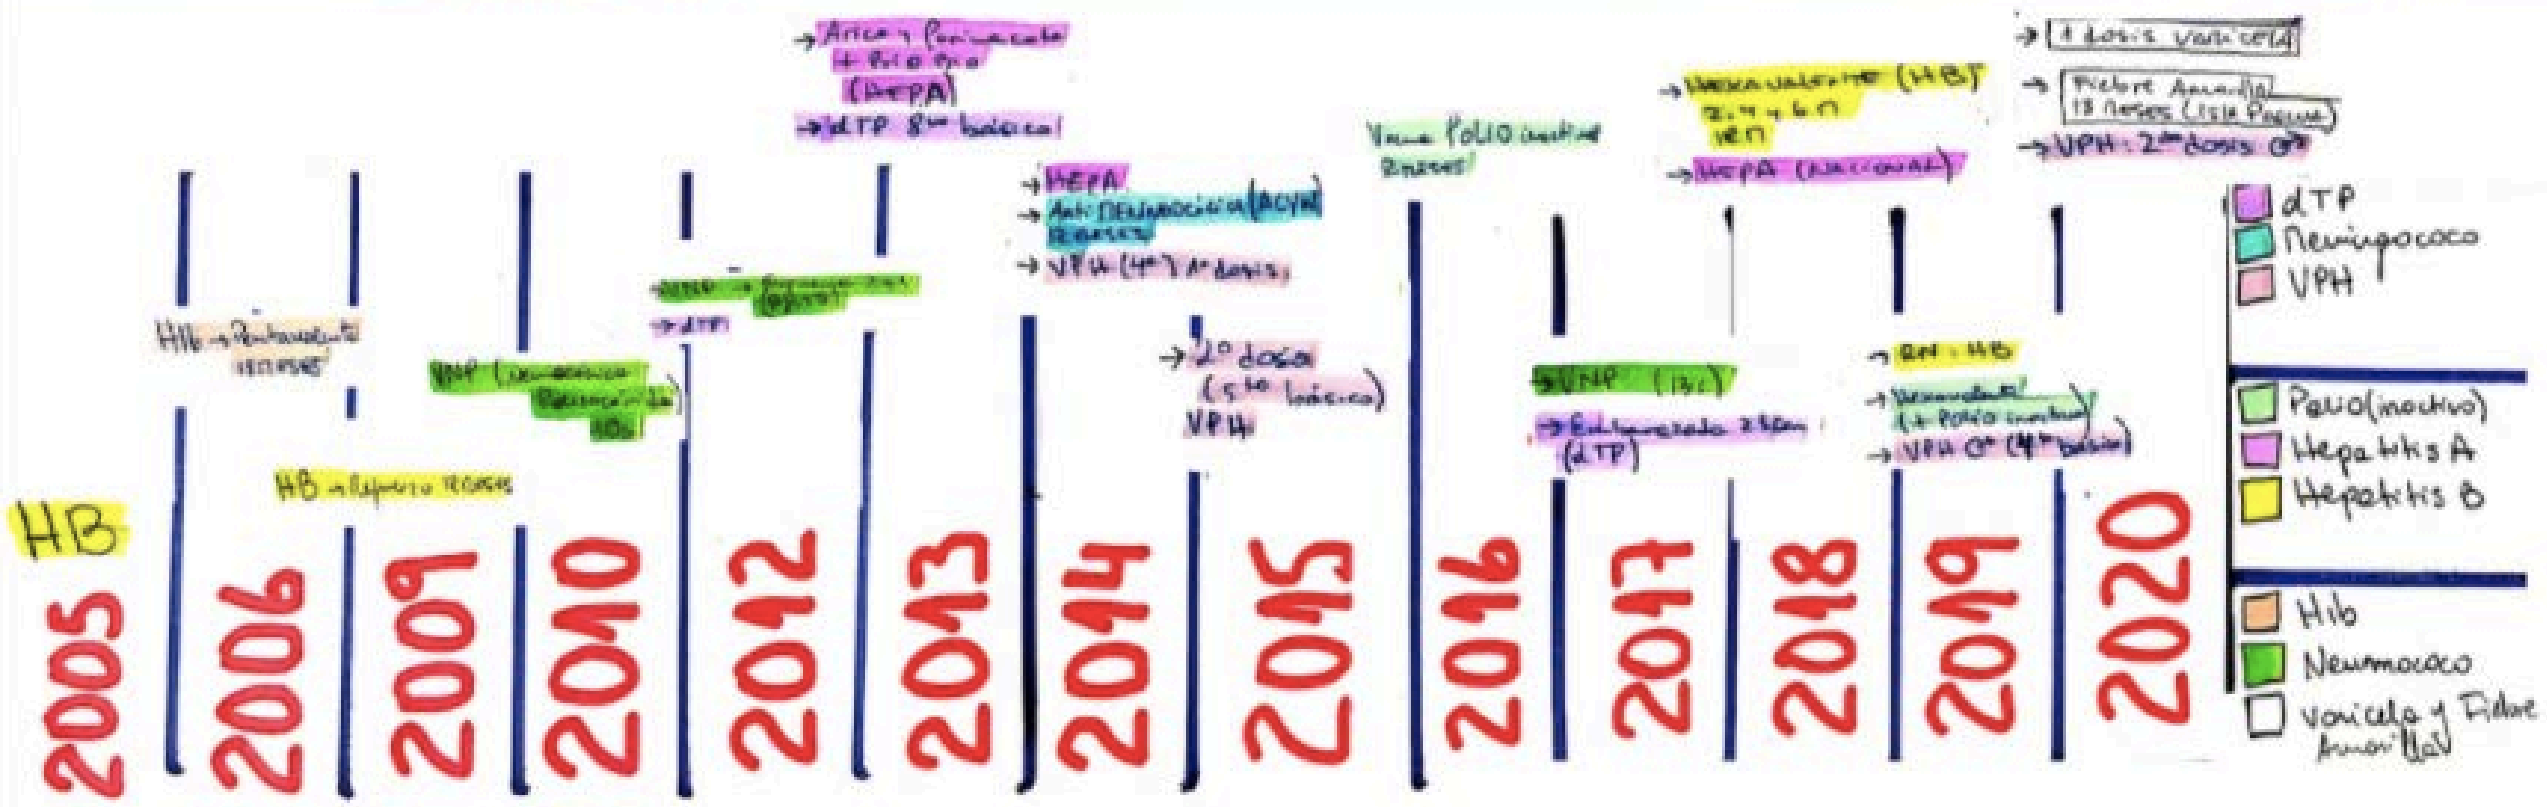 HB
2005
Hib → Pentavalente
18 meses
2006
HB → Refuerzo 18 meses
2009
VNP (neumocócica
Polisacárida
10)
2010
→ VNP → Refuerzo
→ dTP
2012
→ Arica y Parinacota
+ Pozo
(HEPA)
→ dTP 8vo básico
2013
→ HEPA
→ Anti Meningocócica (ACYW)
12 meses
→ VPH (4to) 1ra dosis
2014
→ 2da dosis
(5to básico)
VPH
2015
Polio
2 meses
2016
→ VNP (13)
→ Embarazada 28 sem
(dTP)
2017
→ Hexavalente (HB)
2, 4 y 6 M
18 M
→ HEPA (Nacional)
2018
→ RN: HB
→ Hexavalente
(+ Polio inactivo)
→ VPH ♂ (4to básico)
2019
→ 1 dosis varicela
→ Fiebre Amarilla
18 meses (Isla Pascua)
→ VPH: 2da dosis ♂
2020
dTP
Meningococo
VPH
Polio (inactivo)
Hepatitis A
Hepatitis B
Hib
Neumococo
Varicela y Fiebre
Amarilla